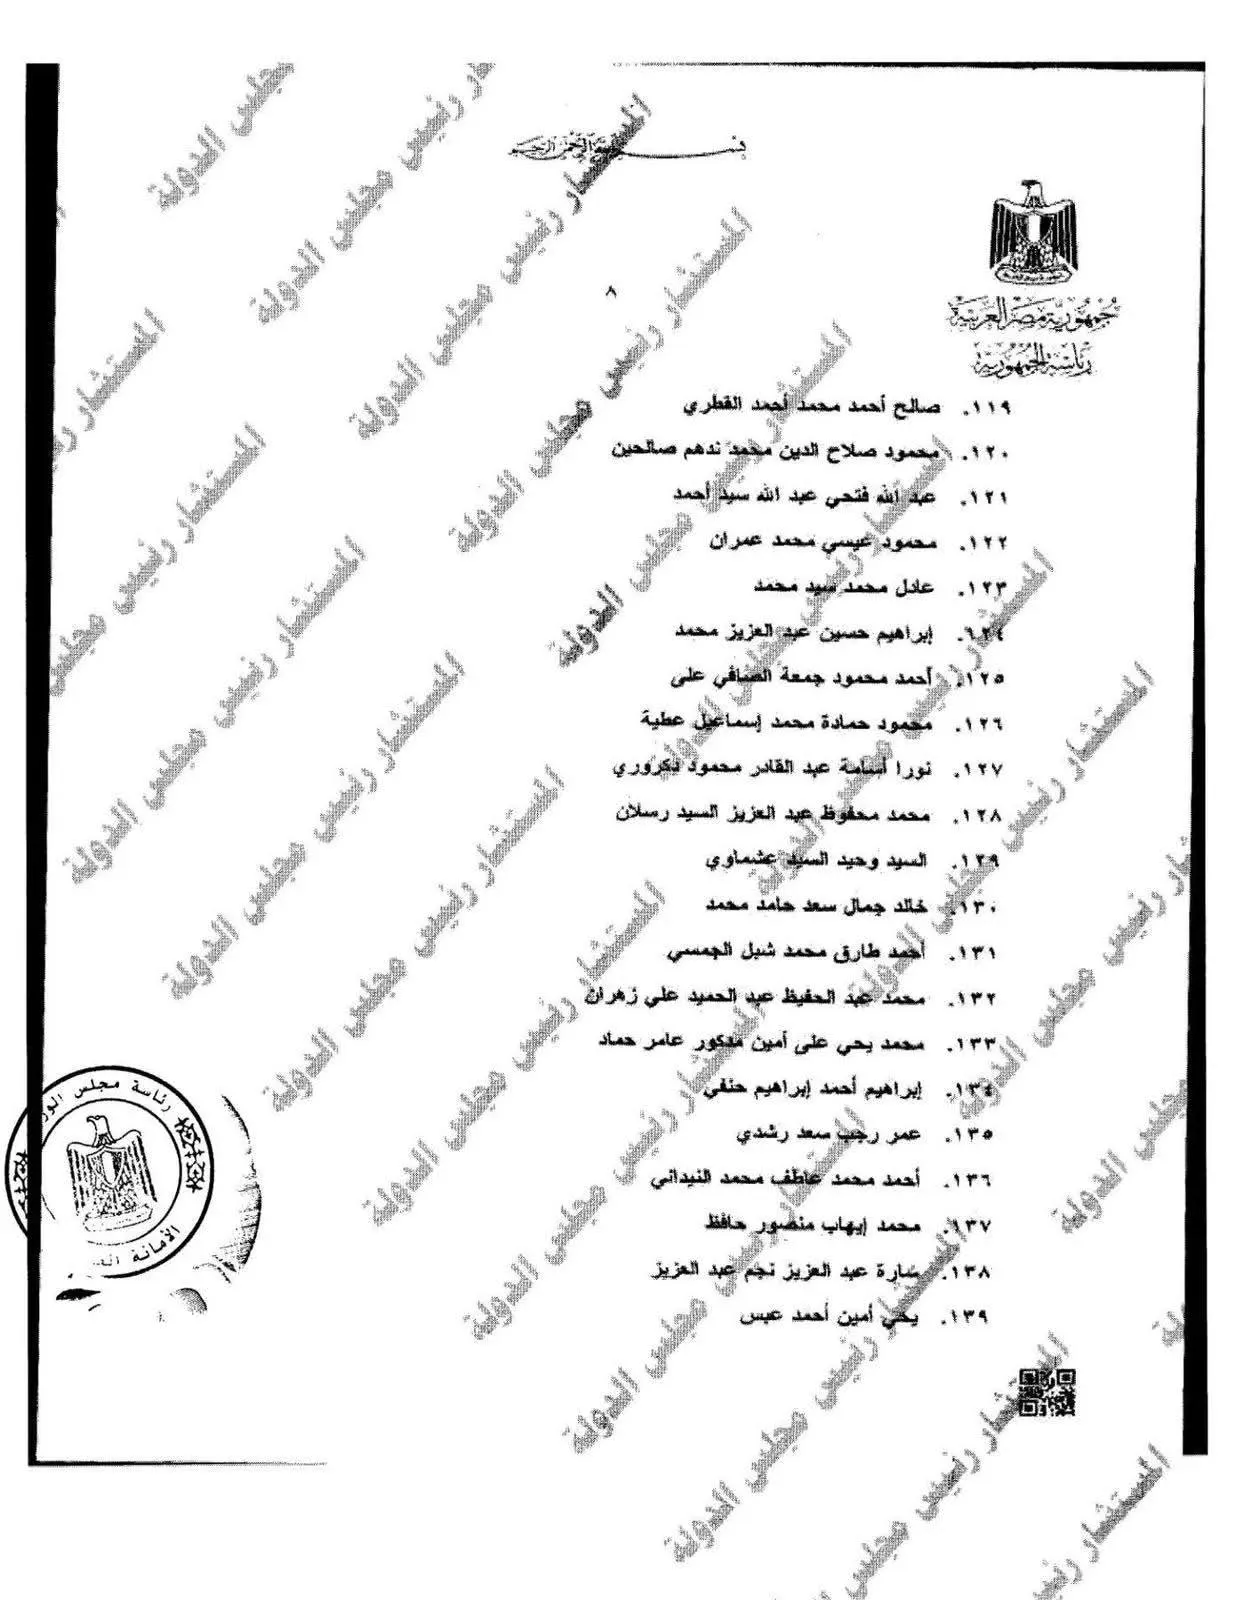 بسم الله الرحمن الرحيم
جمهورية مصر العربية
رئاسة الجمهورية
٨
١١٩. صالح أحمد محمد أحمد القطري
١٢٠. محمود صلاح الدين محمد ندهم صالحين
١٢١. عبد الله فتحي عبد الله سيد أحمد
١٢٢. محمود عيسي محمد عمران
١٢٣. عادل محمد سيد محمد
١٢٤. إبراهيم حسين عبد العزيز محمد
١٢٥. أحمد محمود جمعة الصافي على
١٢٦. محمود حمادة محمد إسماعيل عطية
١٢٧. نورا أسامة عبد القادر محمود بكروري
١٢٨. محمد محفوظ عبد العزيز السيد رسلان
١٢٩. السيد وحيد السيد عشماوي
١٣٠. خالد جمال سعد حامد محمد
١٣١. أحمد طارق محمد شبل الجمسي
١٣٢. محمد عبد الحفيظ عبد الحميد علي زهران
١٣٣. محمد يحي على أمين مدكور عامر حماد
١٣٤. إبراهيم أحمد إبراهيم حنفي
١٣٥. عمر رجب سعد رشدي
١٣٦. أحمد محمد عاطف محمد النيداني
١٣٧. محمد إيهاب منصور حافظ
١٣٨. سارة عبد العزيز نجم عبد العزيز
١٣٩. يحي أمين أحمد عبس
رئاسة مجلس
الأمانة
المستشار رئيس مجلس الدولة